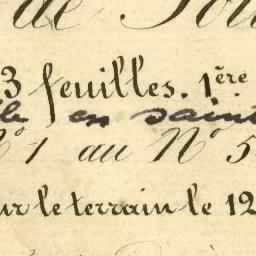 de
3 feuilles. 1ère
en saint
N° 1 au N° 5
ur le terrain le 12